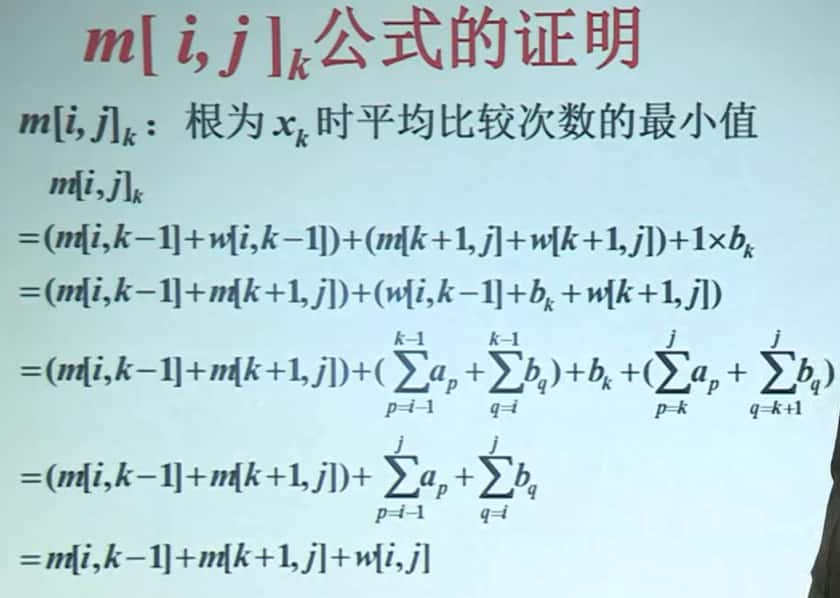 m[ i, j ]ₖ公式的证明
m[i, j]ₖ： 根为 xₖ 时平均比较次数的最小值
m[i, j]ₖ
=(m[i,k−1]+w[i,k−1])+(m[k+1,j]+w[k+1,j])+1×bₖ
=(m[i,k−1]+m[k+1,j])+(w[i,k−1]+bₖ+w[k+1,j])
=(m[i,k−1]+m[k+1,j])+(∑_{p=i−1}^{k−1} a_p+∑_{q=i}^{k−1} b_q)+bₖ+(∑_{p=k}^{j} a_p+∑_{q=k+1}^{j} b_q)
=(m[i,k−1]+m[k+1,j])+∑_{p=i−1}^{j} a_p+∑_{q=i}^{j} b_q
=m[i,k−1]+m[k+1,j]+w[i,j]